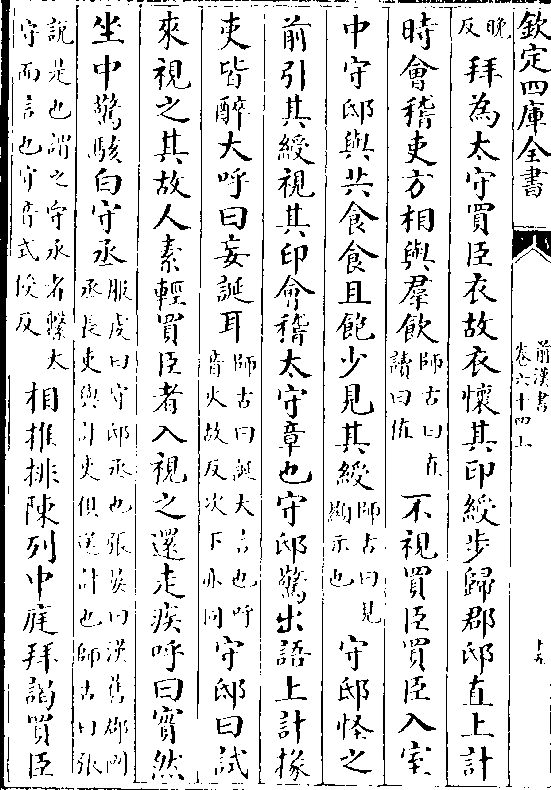 欽定四庫全書
前漢書
卷六十四上
十五
晚反拜為太守買臣衣故衣懷其印綬步歸郡邸直上計
時會稽吏方相與羣飲師古曰直讀曰值不視買臣買臣入室
中守邸與共食食且飽少見其綬師古曰見顯示也守邸怪之
前引其綬視其印會稽太守章也守邸驚出語上計掾
吏皆醉大呼曰妄誕耳師古曰誕大言也呼音火故反次下亦同守邸曰試
來視之其故人素輕買臣者入視之還走疾呼曰實然
坐中驚駭白守丞服虔曰守邸丞也張晏曰漢舊郡國丞長吏與計吏俱送計也師古曰張
說是也謂之守丞者繫太守而言也守音式授反相推排陳列中庭拜謁買臣